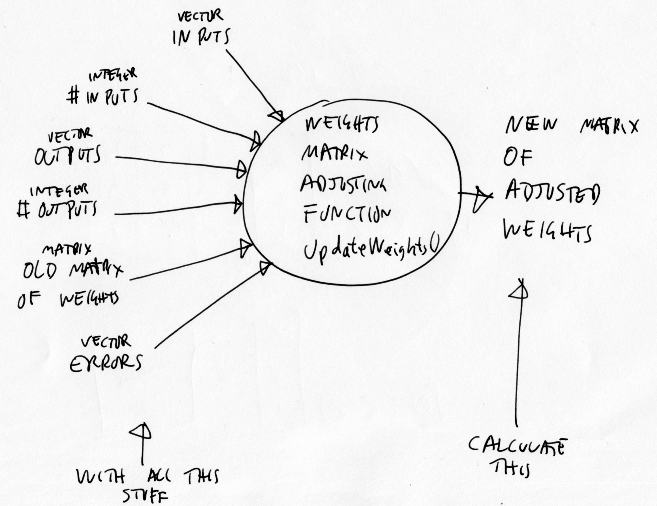 VECTOR
INPUTS
INTEGER
# INPUTS
VECTOR
OUTPUTS
INTEGER
# OUTPUTS
MATRIX
OLD MATRIX
OF WEIGHTS
VECTOR
ERRORS
WITH ALL THIS
STUFF
WEIGHTS
MATRIX
ADJUSTING
FUNCTION
UpdateWeights()
NEW MATRIX
OF
ADJUSTED
WEIGHTS
CALCULATE
THIS